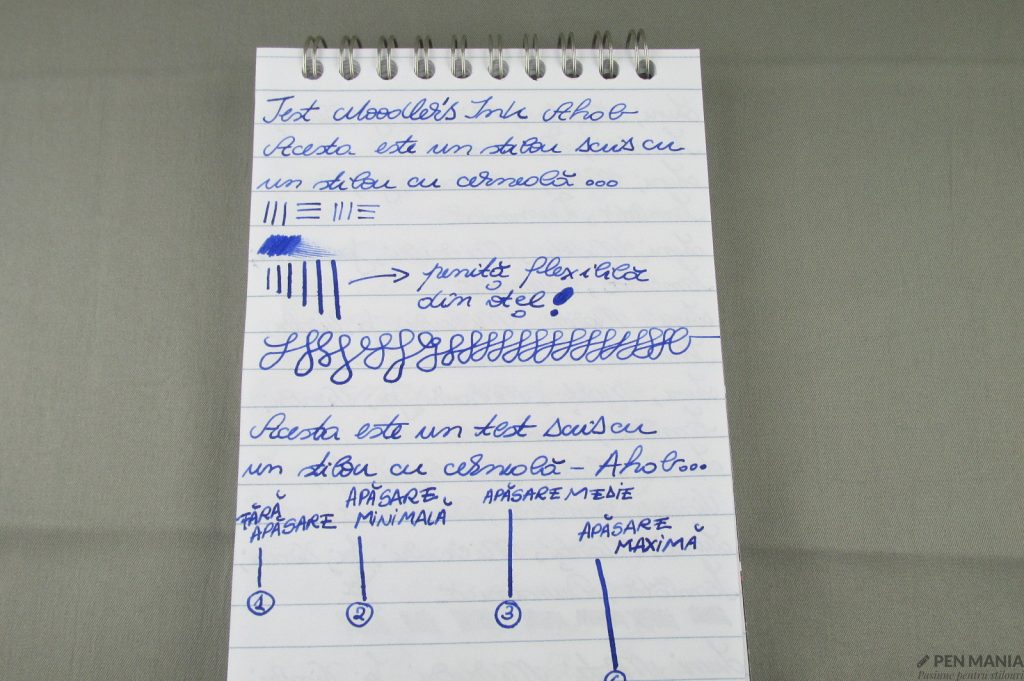 Test Noodler's Ink Ahab
Acesta este un stilou scris cu
un stilou cu cerneală ...
penița flexibilă
din oțel!
Acesta este un test scris cu
un stilou cu cerneală - Ahab...
FĂRĂ APĂSARE
APĂSARE MINIMALĂ
APĂSARE MEDIE
APĂSARE MAXIMĂ
1
2
3
PEN MANIA
Pasiune pentru stilouri